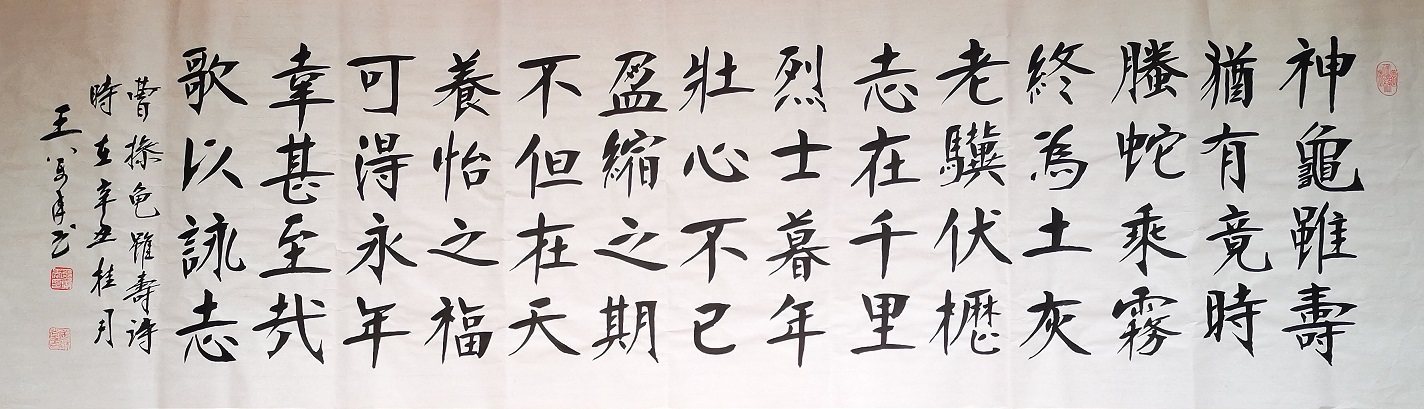 神龜雖壽
猶有竟時
螣蛇乘霧
終為土灰
老驥伏櫪
志在千里
烈士暮年
壯心不已
盈縮之期
不但在天
養怡之福
可得永年
幸甚至哉
歌以詠志
曹操龟雖壽诗
時在辛丑桂月
王书